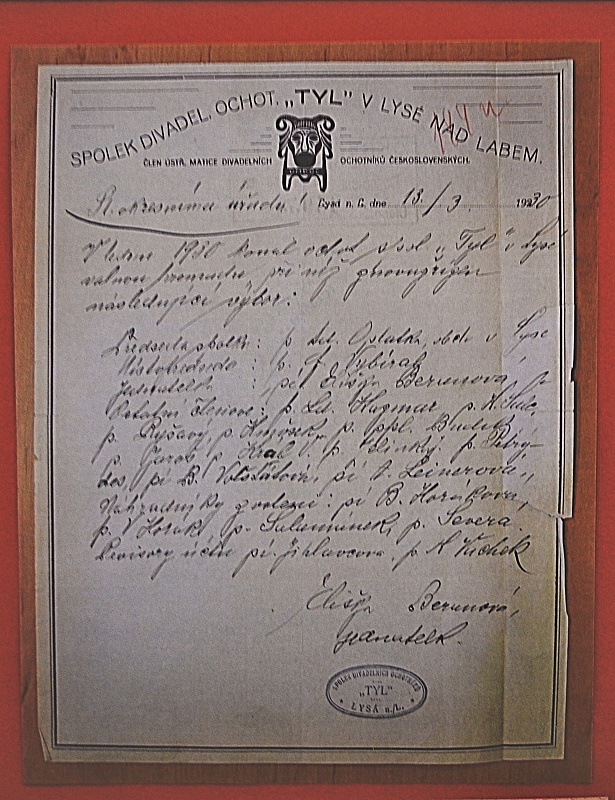 SPOLEK DIVADEL. OCHOT. „TYL" V LYSÉ NAD LABEM.
ČLEN ÚSTŘ. MATICE DIVADELNÍCH OCHOTNÍKŮ ČESKOSLOVENSKÝCH.
Sl. okresnímu úřadu! Lysá n. L. dne 13./3. 1930
V lednu 1930 konal ochot. spol. „Tyl" v Lysé
valnou hromadu při níž
následující výbor:
Předseda spolku: p. Oplatka, v Lysé
Místopředseda: p. J. Vybíral
Jednatelka: pí Eliška Beranová
Ostatní členové: p. Ed. Hagmar p. K.
p. Ryšavý, p. p.
p. p. Král. p. p.
pí B. Volšatová, pí A. Leinerová,
Náhradníky zvoleni: pí B. Horáková,
p. V Horák, p. Salamanek, p. Severa.
Revisory účtů pí. Jihlavcova. p. K Vachek
Eliška Beranová,
jednatelk.
SPOLEK DIVADELNÍCH OCHOTNÍKŮ
„TYL"
LYSÁ n./L.